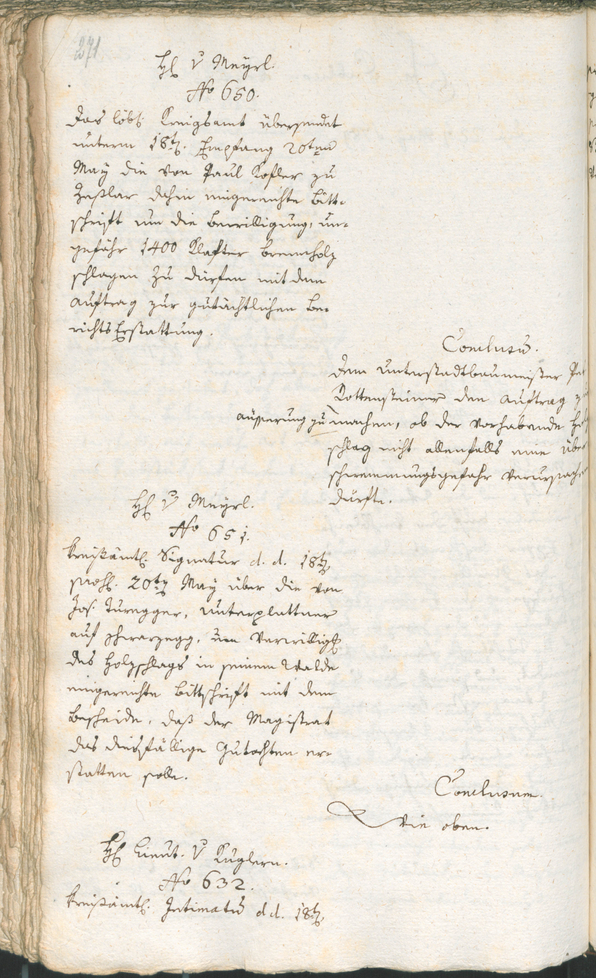 271
H. v Meyrl.
No 650.
Das löbl. Kreisamt übersendet
unterm 18ten Empfang 20ten
May die von Paul Kofler zu
dahin eingereichte Bitt-
schrift um die Bewilligung, un-
gefähr 1400 Klafter brennholz
schlagen zu dürfen mit dem
Auftrag zur gutächtlichen Be-
richtsErstattung.
Conclusum.
Dem Unterstadtbaumeister
Rottensteiner den Auftrag
äusserung zu machen, ob der vorhabende
schlag nicht allenfalls eine über
schwemmungsgefahr verursachen
dürfte.
H. v Meyrl.
No 651.
Kreisämtl. Signatur d. d. 18ten
20ten May über die von
Jos. unterplattner
auf schwarzegg, um Verwilligg
des Holzschlags in seinem Walde
eingereichte Bittschrift mit dem
Bescheide, daß der Magistrat
das diesfällige Gutachten er-
statten solle.
Conclusum.
Wie oben.
H. Lieut. v Kuglern.
No 632.
Kreisämtl. Intimatum d. d. 18ten